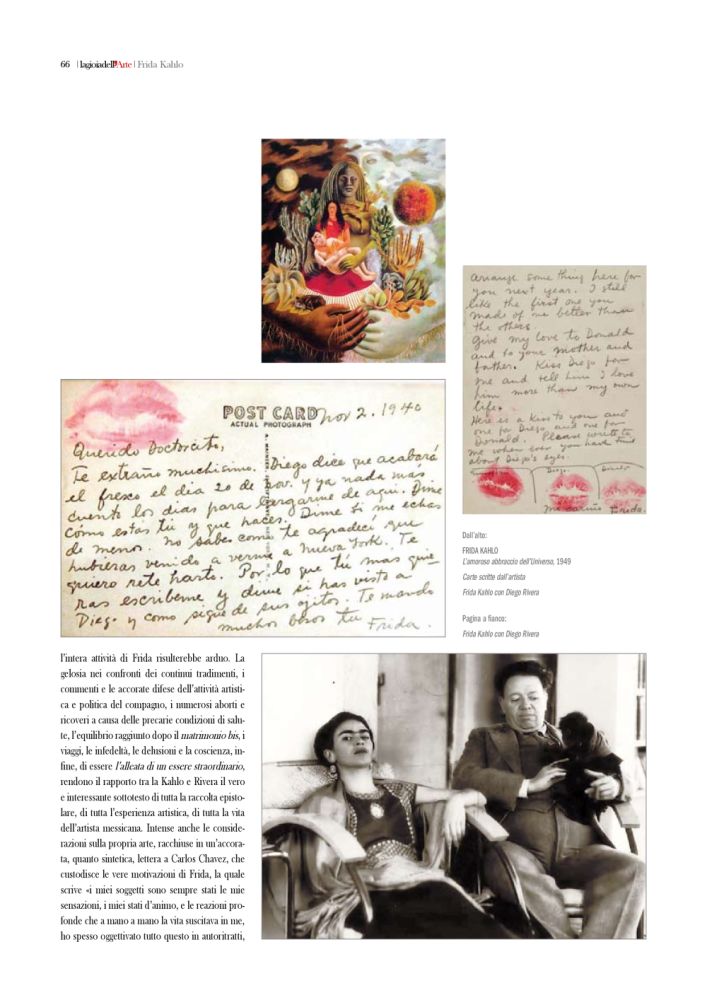 66 | lagioiadell'Arte | Frida Kahlo
arrange some thing here for
you next year. I still
like the first one you
made of me better than
the others.
Give my love to Donald
and to your mother and
father. Kiss Diego for
me and tell him I love
him more than my own
life.
Here is a kiss to you and
one for Diego and one for
Donald. Please write to
me when ever you have time
about Diego's eyes.
Diego.
mi cariño Frida.
POST CARD
ACTUAL PHOTOGRAPH
Nov 2. 1940
Querido Doctorcito,
Te extraño muchisimo. Diego dice que acabará
el fresco el dia 20 de Nov. y ya nada mas
cuento los dias para largarme de aqui. Dime
cómo estás tú y que haces. Dime si me echas
de menos. no sabes como te agradecí que
hubieras venido a verme a Nueva York. Te
quiero rete harto. Por lo que tú mas quie
ras escribeme y dime si has visto a
Diego y como sigue de sus ojitos. Te mando
muchos besos tu Frida.
Dall'alto:
FRIDA KAHLO
L'amoroso abbraccio dell'Universo, 1949
Carte scritte dall'artista
Frida Kahlo con Diego Rivera
Pagina a fianco:
Frida Kahlo con Diego Rivera
l'intera attività di Frida risulterebbe arduo. La
gelosia nei confronti dei continui tradimenti, i
commenti e le accorate difese dell'attività artisti-
ca e politica del compagno, i numerosi aborti e
ricoveri a causa delle precarie condizioni di salu-
te, l'equilibrio raggiunto dopo il matrimonio bis, i
viaggi, le infedeltà, le delusioni e la coscienza, in-
fine, di essere l'alleata di un essere straordinario,
rendono il rapporto tra la Kahlo e Rivera il vero
e interessante sottotesto di tutta la raccolta episto-
lare, di tutta l'esperienza artistica, di tutta la vita
dell'artista messicana. Intense anche le conside-
razioni sulla propria arte, racchiuse in un'accora-
ta, quanto sintetica, lettera a Carlos Chavez, che
custodisce le vere motivazioni di Frida, la quale
scrive «i miei soggetti sono sempre stati le mie
sensazioni, i miei stati d'animo, e le reazioni pro-
fonde che a mano a mano la vita suscitava in me,
ho spesso oggettivato tutto questo in autoritratti,